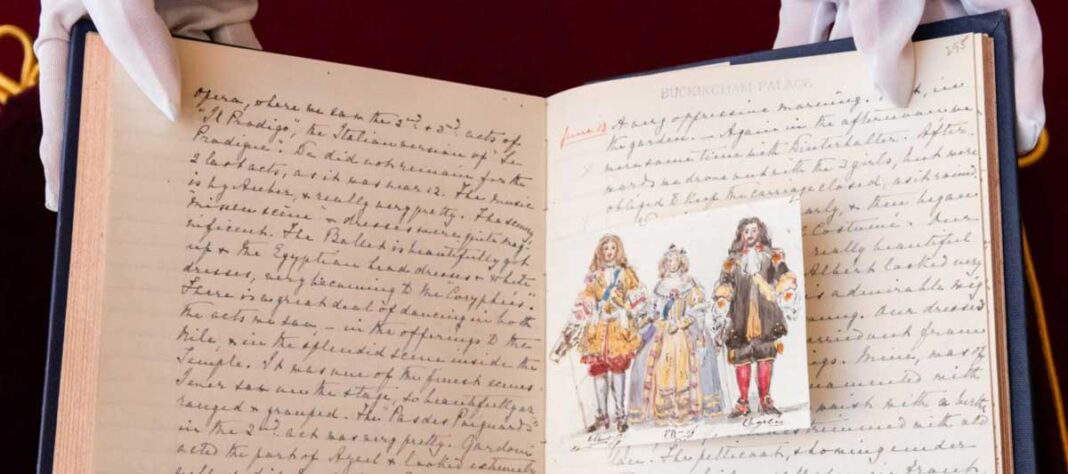 opera, where we saw the 2nd & 3d acts of
"Il Prodigo", the Italian version of "Le
Prodigue". We did not remain for the
2 last acts, as it was near 12. The music
is by Auber, & really very pretty. The scenery
"mise en scène" & dresses were quite mag-
nificent. The Ballet is beautifully got
up & the Egyptian head dresses & white
dresses, very becoming to the "Coryphées".
There is a great deal of dancing in both
the acts we saw, – in the offerings to the
Nile, & in the splendid scene inside the
Temple. It was one of the finest scenes
I ever saw on the stage, so beautifully ar-
ranged & grouped. The "Pas des Poignards"
in the 2nd act was very pretty. Gardoni
acted the part of Azael & looked extremely
295
BUCKINGHAM PALACE
June 13 A very oppressive morning. in
the garden. – Again in the afternoon we
were some time with Winterhalter. After-
wards we drove out with the 2 girls, but were
obliged to keep the carriage closed, as it rained.
early, & then began
Costumé".
really beautiful
Albert looked very
is admirable
Our dresses
from
Mine, was of
with
waist with a
trimmed with
The petticoat, showing under
Charles